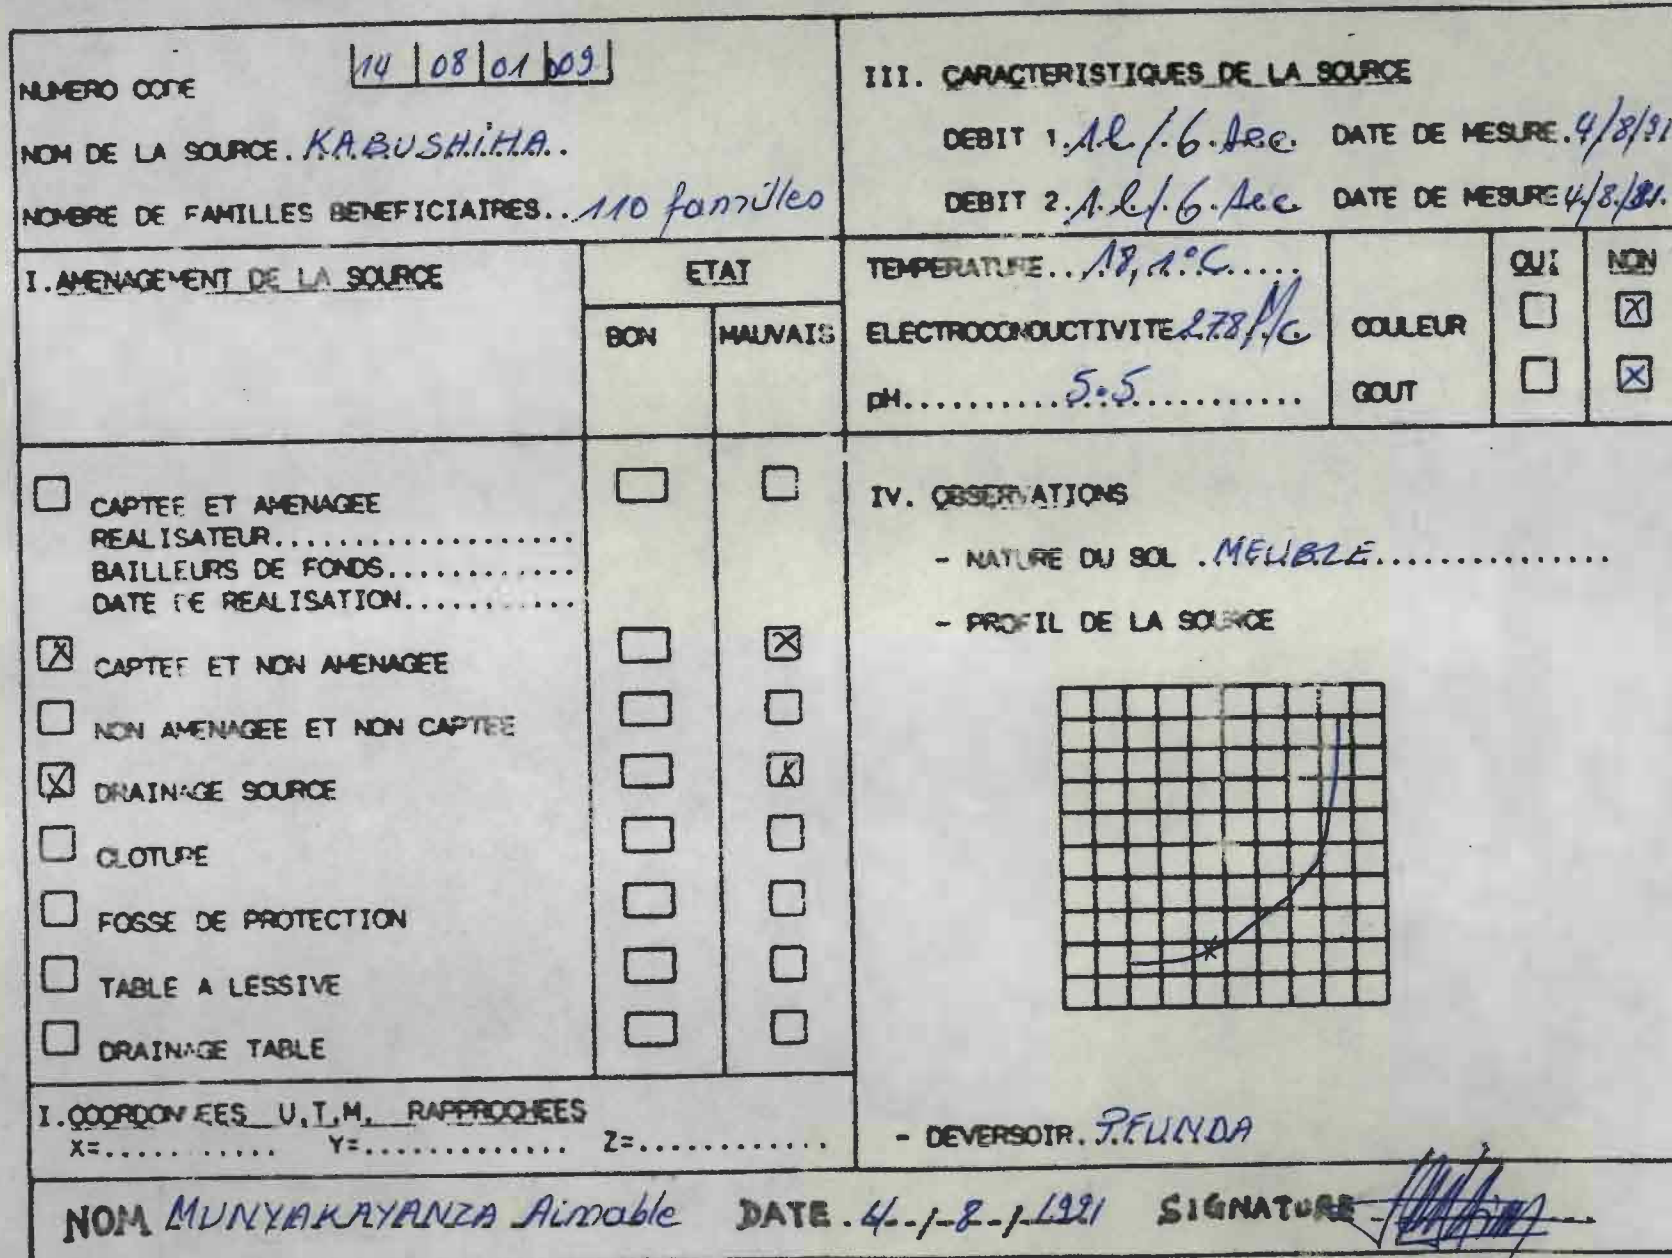 NUMERO CODE 14 08 01 009
NOM DE LA SOURCE. KABUSHIHA..
NOMBRE DE FAMILLES BENEFICIAIRES.. 110 familles
I. AMENAGEMENT DE LA SOURCE
ETAT
BON MAUVAIS
CAPTEE ET AMENAGEE
REALISATEUR...................
BAILLEURS DE FONDS............
DATE DE REALISATION...........
X CAPTEE ET NON AMENAGEE X
NON AMENAGEE ET NON CAPTEE
X DRAINAGE SOURCE X
CLOTURE
FOSSE DE PROTECTION
TABLE A LESSIVE
DRAINAGE TABLE
I. COORDONNEES U.T.M. RAPPROCHEES
X=........... Y=............. Z=............
III. CARACTERISTIQUES DE LA SOURCE
DEBIT 1. 1l/.6.sec. DATE DE MESURE. 4/8/91
DEBIT 2. 1.l/.6.sec DATE DE MESURE 4/8/91.
TEMPERATURE.. 18,1°C.....
ELECTROCONDUCTIVITE 278
pH.......... 5.5............
OUI NON
COULEUR X
GOUT X
IV. OBSERVATIONS
- NATURE DU SOL . MEUBLE...............
- PROFIL DE LA SOURCE
- DEVERSOIR. PFUNDA
NOM MUNYAKAYANZA Aimable DATE. 4-/-8-/1991 SIGNATURE